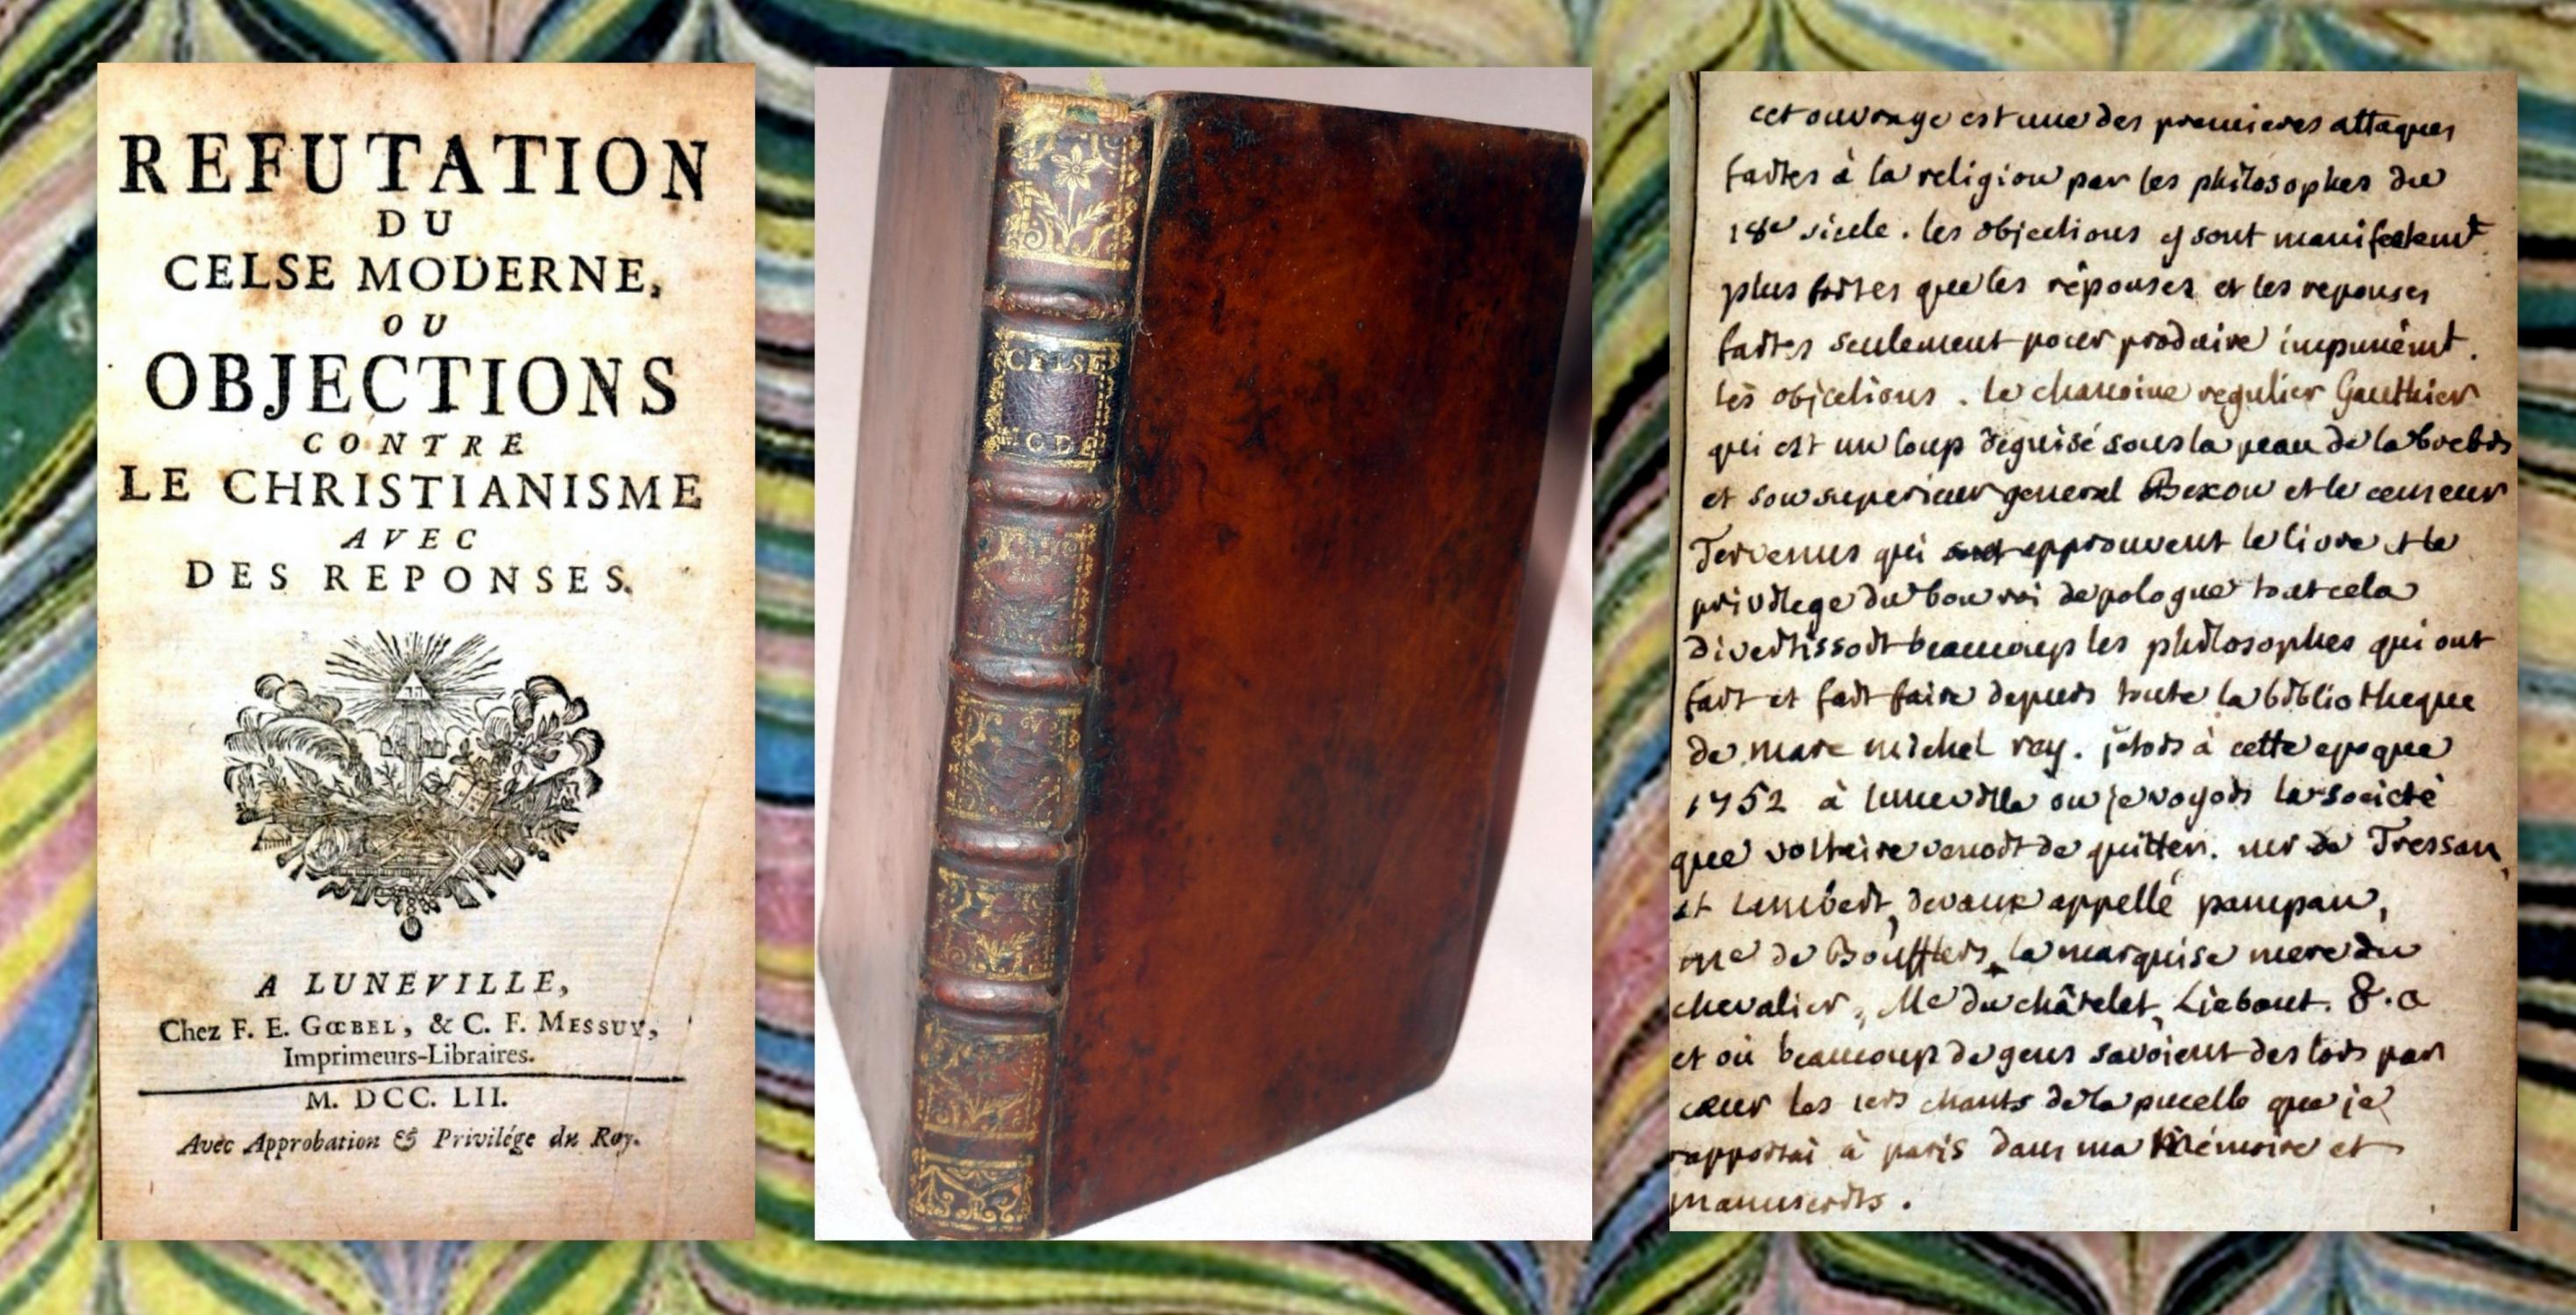 REFUTATION
DU
CELSE MODERNE,
OU
OBJECTIONS
CONTRE
LE CHRISTIANISME
AVEC
DES REPONSES.
A LUNEVILLE,
Chez F. E. GŒBEL, & C. F. MESSUY,
Imprimeurs-Libraires.
M. DCC. LII.
Avec Approbation & Privilége du Roy.
CELSE
MODE
cet ouvrage est une des premieres attaques
faites à la religion par les philosophes du
18e siecle. les objections y sont manifestemt
plus fortes que les réponses et les reponses
faites seulement pour produire impunémt.
les objections. le chanoine regulier Gauthier
qui est un loup deguisé sous la peau de la brebis
et son superieur general Bexon et le censeur
Tervenus qui approuvent le livre et le
privilege du bon roi de pologne tout cela
divertissoit beaucoup les philosophes qui ont
fait et fait faire depuis toute la bibliotheque
de marc michel rey. j'etois à cette epoque
1752 à luneville ou je voyois la société
que voltaire venoit de quitter. mr de Tressan,
st Lambert, devaux appellé panpan,
me de Boufflers, la marquise mere du
chevalier, Me du châtelet, Liebaut. &.a
et où beaucoup de gens savoient des lors par
cœur les 1ers chants de la pucelle que je
rapportai à paris dans ma Mémoire et
manuscrits.